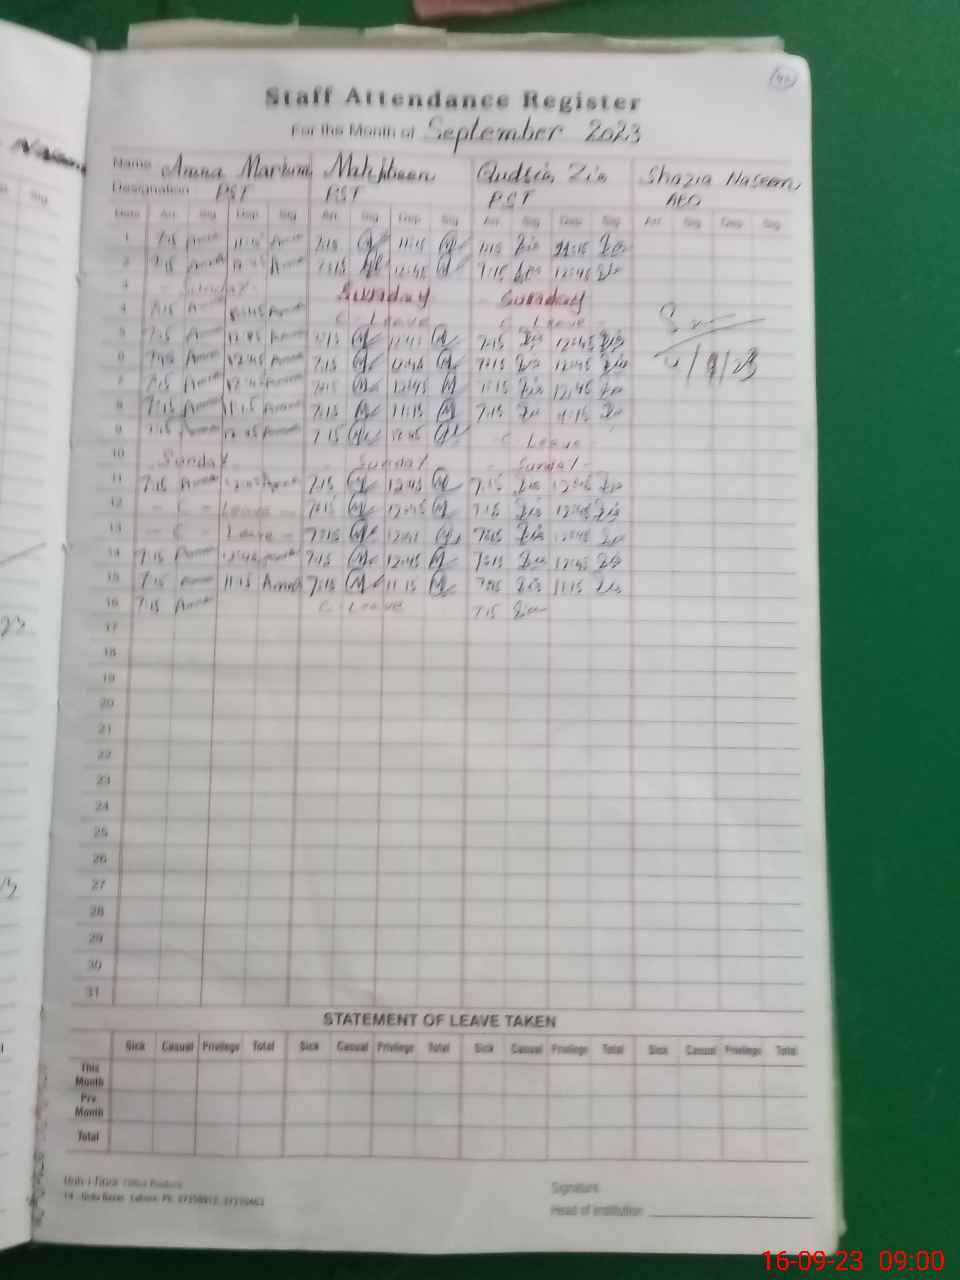 Staff Attendance Register
For the Month of September 2023
Name Amna Marium Mahjbeen Qudsia Zia Shazia Naseem
Designation PST PST PST AEO
Date Arr. Sig Dep. Sig Arr. Sig Dep. Sig Arr. Sig Dep. Sig Arr. Sig Dep. Sig
1 7:15 Amna 11:15 Amna 7:15 11:15 7:15 Zia 11:15 Zia
2 7:15 Amna 12:45 Amna 7:15 12:45 7:15 Zia 12:45 Zia
3 Sunday Sunday Sunday
4 7:15 Amna 12:45 Amna C. Leave C. Leave
5 7:15 Amna 12:45 Amna 7:15 12:45 7:15 Zia 12:45 Zia
6 7:15 Amna 12:45 Amna 7:15 12:45 7:15 Zia 12:45 Zia
4/9/23
7 7:15 Amna 12:45 Amna 7:15 12:45 7:15 Zia 12:45 Zia
8 7:15 Amna 11:15 Amna 7:15 11:15 7:15 Zia Zia
9 7:15 Amna 12:45 Amna 7:15 12:45 C. Leave
10 Sunday Sunday Sunday
11 7:15 Amna 12:45 Amna 7:15 12:45 7:15 Zia 12:45 Zia
12 - C - Leave - 7:15 12:45 7:15 Zia 12:45 Zia
13 - C - Leave - 7:15 12:45 7:15 Zia 12:45 Zia
14 7:15 Amna 12:45 Amna 7:15 12:45 7:15 Zia 12:45 Zia
15 7:15 Amna 11:15 Amna 7:15 11:15 7:15 Zia 11:15 Zia
16 7:15 Amna C. Leave 7:15 Zia
17
18
19
20
21
22
23
24
25
26
27
28
29
30
31
STATEMENT OF LEAVE TAKEN
Sick Casual Privilege Total Sick Casual Privilege Total Sick Casual Privilege Total Sick Casual Privilege Total
This
Month
Prv.
Month
Total
Office Products
14 - Urdu Bazar, Lahore. Ph:
Signature
Head of Institution
16-09-23 09:00